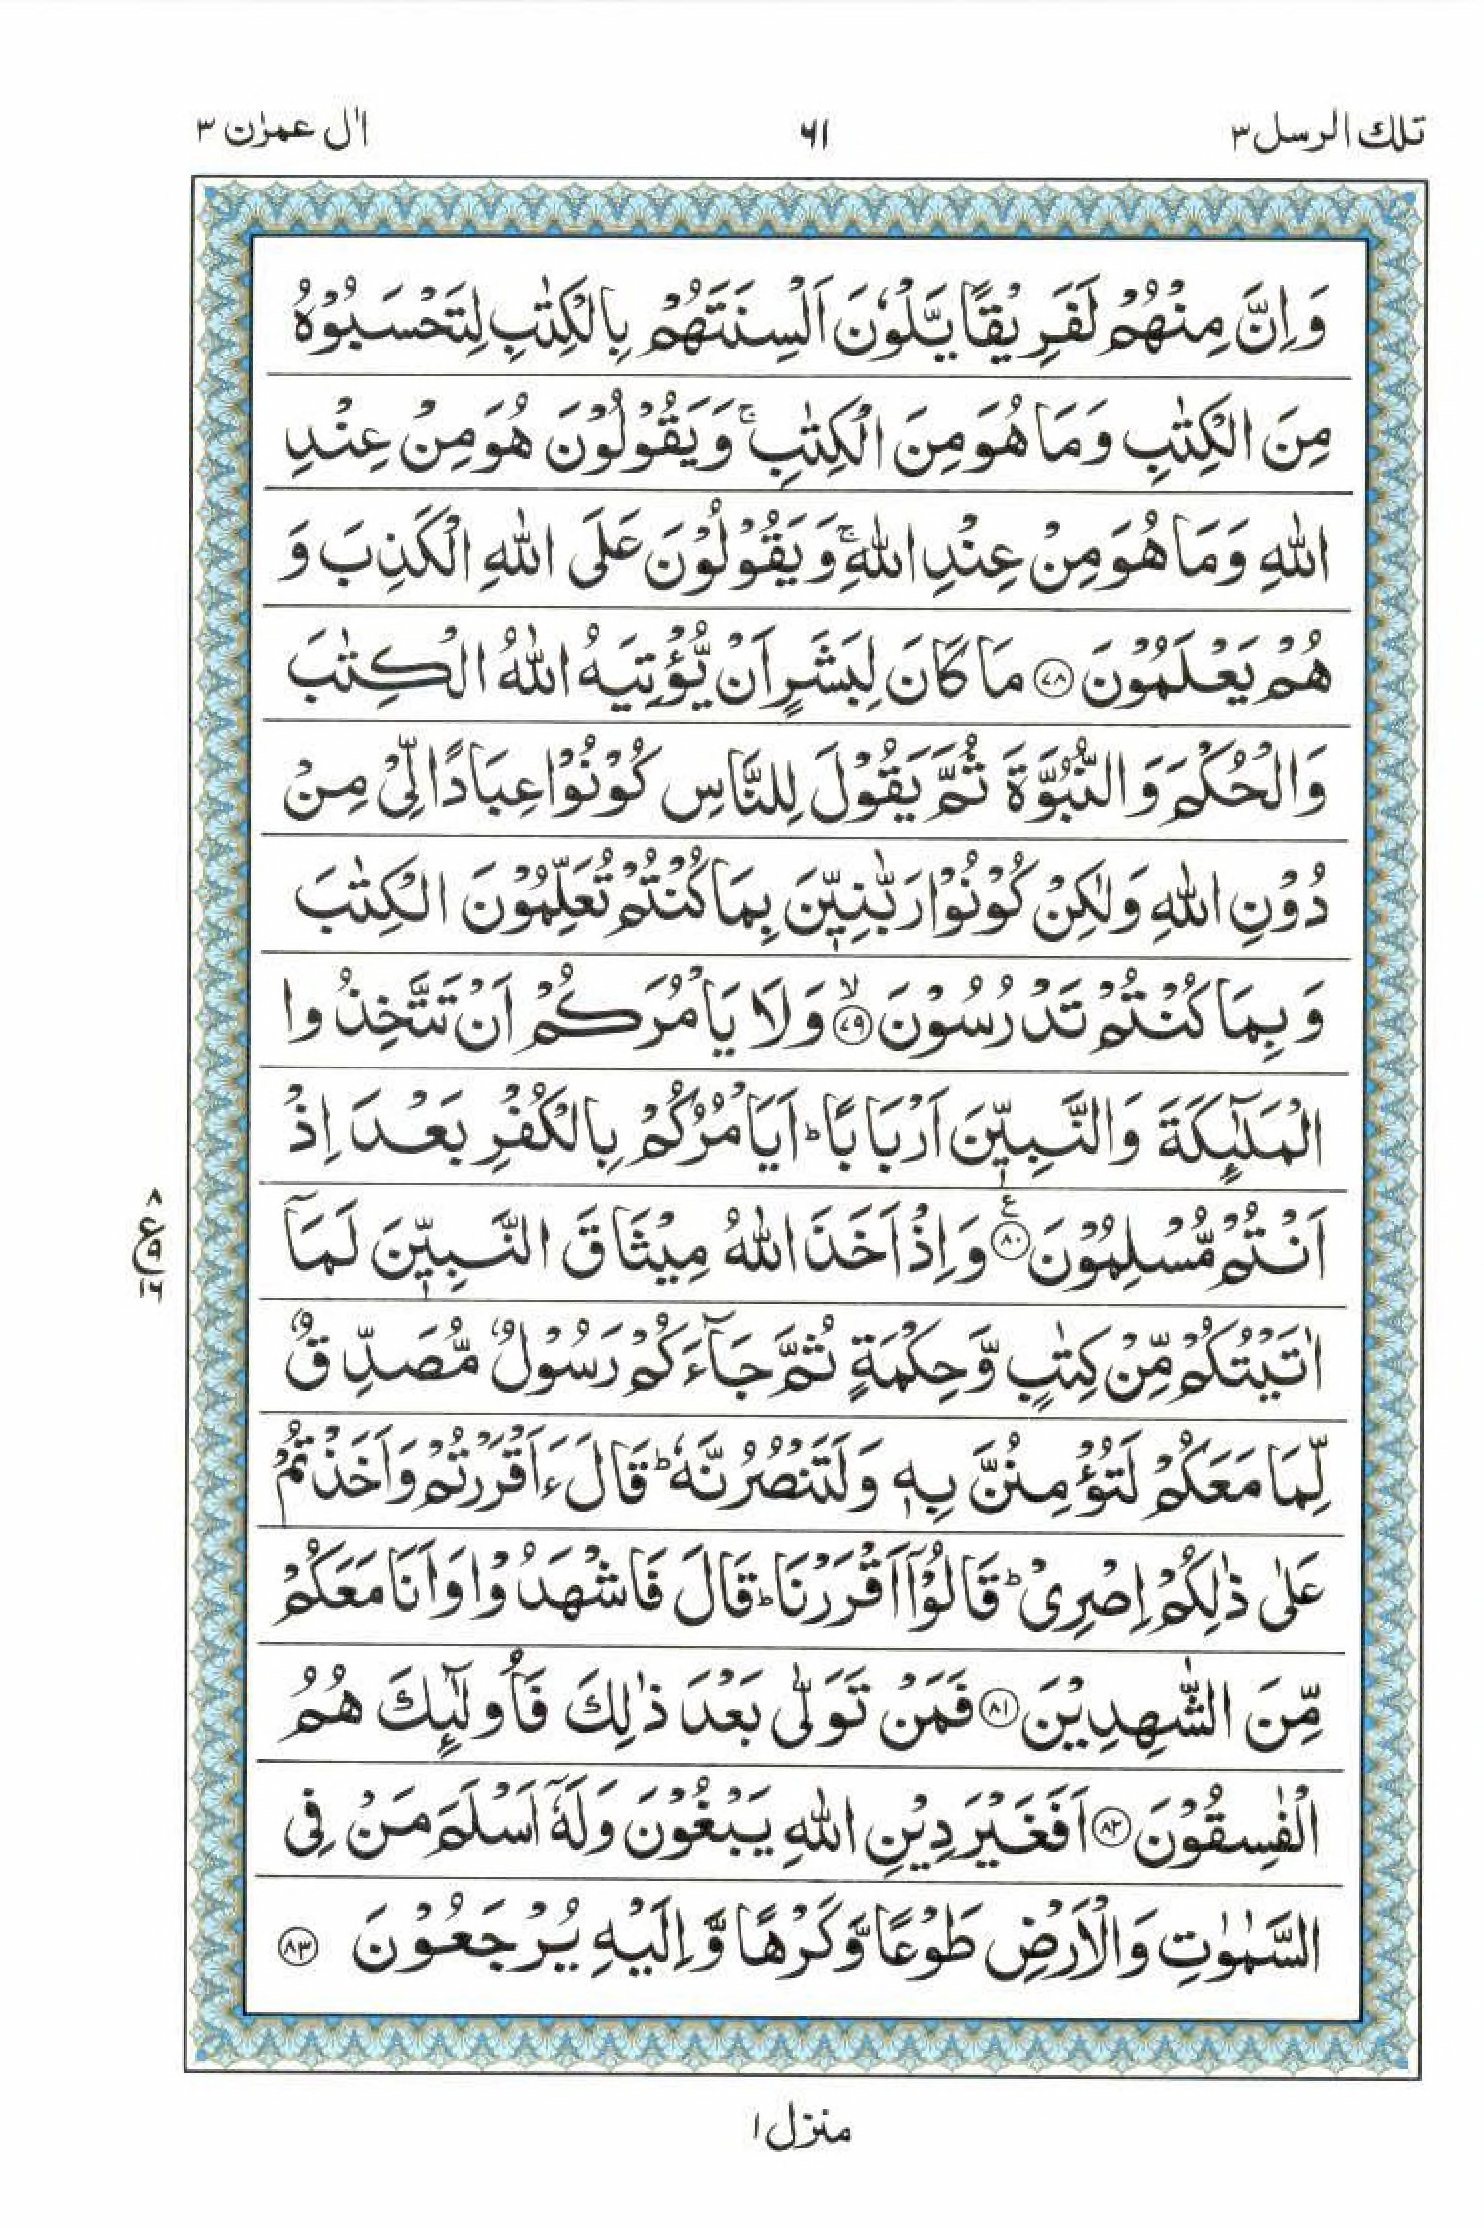 تلك الرسل ٣
٦١
اٰل عمرٰن ٣
وَاِنَّ مِنْهُمْ لَفَرِيْقًا يَّلْوٗنَ اَلْسِنَتَهُمْ بِالْكِتٰبِ لِتَحْسَبُوْهُ
مِنَ الْكِتٰبِ وَمَا هُوَ مِنَ الْكِتٰبِ ۚ وَيَقُوْلُوْنَ هُوَ مِنْ عِنْدِ
اللّٰهِ وَمَا هُوَ مِنْ عِنْدِ اللّٰهِ ۚ وَيَقُوْلُوْنَ عَلَى اللّٰهِ الْكَذِبَ وَ
هُمْ يَعْلَمُوْنَ ﴿۷۸﴾ مَا كَانَ لِبَشَرٍ اَنْ يُّؤْتِيَهُ اللّٰهُ الْكِتٰبَ
وَالْحُكْمَ وَالنُّبُوَّةَ ثُمَّ يَقُوْلَ لِلنَّاسِ كُوْنُوْا عِبَادًا لِّيْ مِنْ
دُوْنِ اللّٰهِ وَلٰكِنْ كُوْنُوْا رَبّٰنِيّٖنَ بِمَا كُنْتُمْ تُعَلِّمُوْنَ الْكِتٰبَ
وَبِمَا كُنْتُمْ تَدْرُسُوْنَ ﴿۷۹﴾ۙ وَلَا يَاْمُرَكُمْ اَنْ تَتَّخِذُوا
الْمَلٰٓئِكَةَ وَالنَّبِيّٖنَ اَرْبَابًا ؕ اَيَاْمُرُكُمْ بِالْكُفْرِ بَعْدَ اِذْ
اَنْتُمْ مُّسْلِمُوْنَ ﴿۸۰﴾ ع وَاِذْ اَخَذَ اللّٰهُ مِيْثَاقَ النَّبِيّٖنَ لَمَاۤ
اٰتَيْتُكُمْ مِّنْ كِتٰبٍ وَّحِكْمَةٍ ثُمَّ جَآءَكُمْ رَسُوْلٌ مُّصَدِّقٌ
لِّمَا مَعَكُمْ لَتُؤْمِنُنَّ بِهٖ وَلَتَنْصُرُنَّهٗ ؕ قَالَ ءَاَقْرَرْتُمْ وَاَخَذْتُمْ
عَلٰى ذٰلِكُمْ اِصْرِيْ ؕ قَالُوْۤا اَقْرَرْنَا ؕ قَالَ فَاشْهَدُوْا وَاَنَا مَعَكُمْ
مِّنَ الشّٰهِدِيْنَ ﴿۸۱﴾ فَمَنْ تَوَلّٰى بَعْدَ ذٰلِكَ فَاُولٰٓئِكَ هُمُ
الْفٰسِقُوْنَ ﴿۸۲﴾ اَفَغَيْرَ دِيْنِ اللّٰهِ يَبْغُوْنَ وَلَهٗۤ اَسْلَمَ مَنْ فِي
السَّمٰوٰتِ وَالْاَرْضِ طَوْعًا وَّكَرْهًا وَّاِلَيْهِ يُرْجَعُوْنَ ﴿۸۳﴾
۸
ع ۹
۱۶
منزل ۱